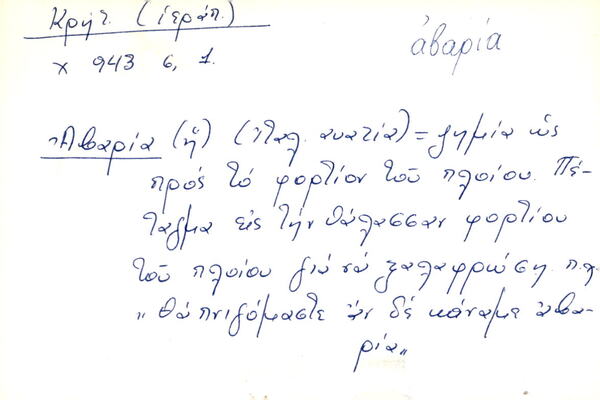 Κρήτ. (ἱεράπ.)
ἀβαρία
χ 943 6, 1.
Ἀβαρία (ἡ) (ἰταλ. avaria) = ζημία ὡς
πρός τό φορτίον τοῦ πλοίου. Πέ-
ταγμα εἰς τήν θάλασσαν φορτίου
τοῦ πλοίου γιά νά ξαλαφρώση. π.χ.
„ Θά πνιγόμαστε ἄν δέ κάναμε ἀβα-
ρία„